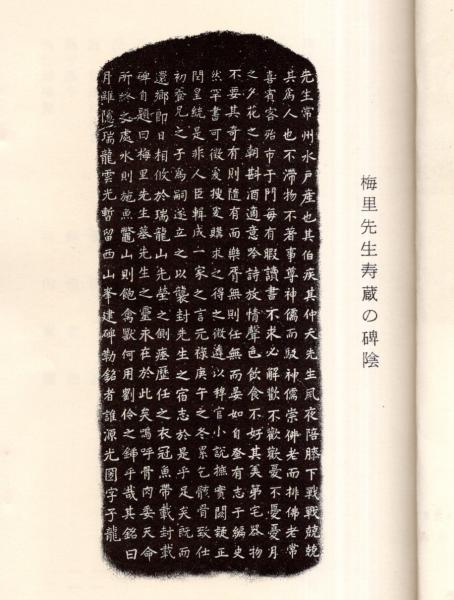 梅里先生寿蔵の碑陰
先生常州水戸産也其伯疾其仲夭先生夙夜陪膝下戰戰兢兢
其爲人也不滯物不著事尊神儒而駁神儒崇佛老而排佛老常
喜賓客殆市于門毎有暇讀書不求必解歡不歡歡憂不憂憂月
之夕花之朝斟酒適意吟詩放情聲色飲食不好其美第宅器物
不要其奇有則隨有而樂胥無則任無而晏如自蚤有志于編史
然罕書可徴爰搜爰購求之得之微遴以稗官小説摭實闕疑正
閏皇統是非人臣輯成一家之言元祿庚午之冬累乞骸骨致仕
初養兄之子爲嗣遂立之以襲封先生之宿志於是乎足矣既而
還鄉即日相攸於瑞龍山先塋之側瘞歷任之衣冠魚帶載封載
碑自題曰梅里先生墓先生之靈永在於此矣嗚呼骨肉委天命
所終之處水則施魚鼈山則飽禽獸何用劉伶之鍤乎哉其銘曰
月雖隱瑞龍雲光暫留西山峯建碑勒銘者誰源光圀字子龍